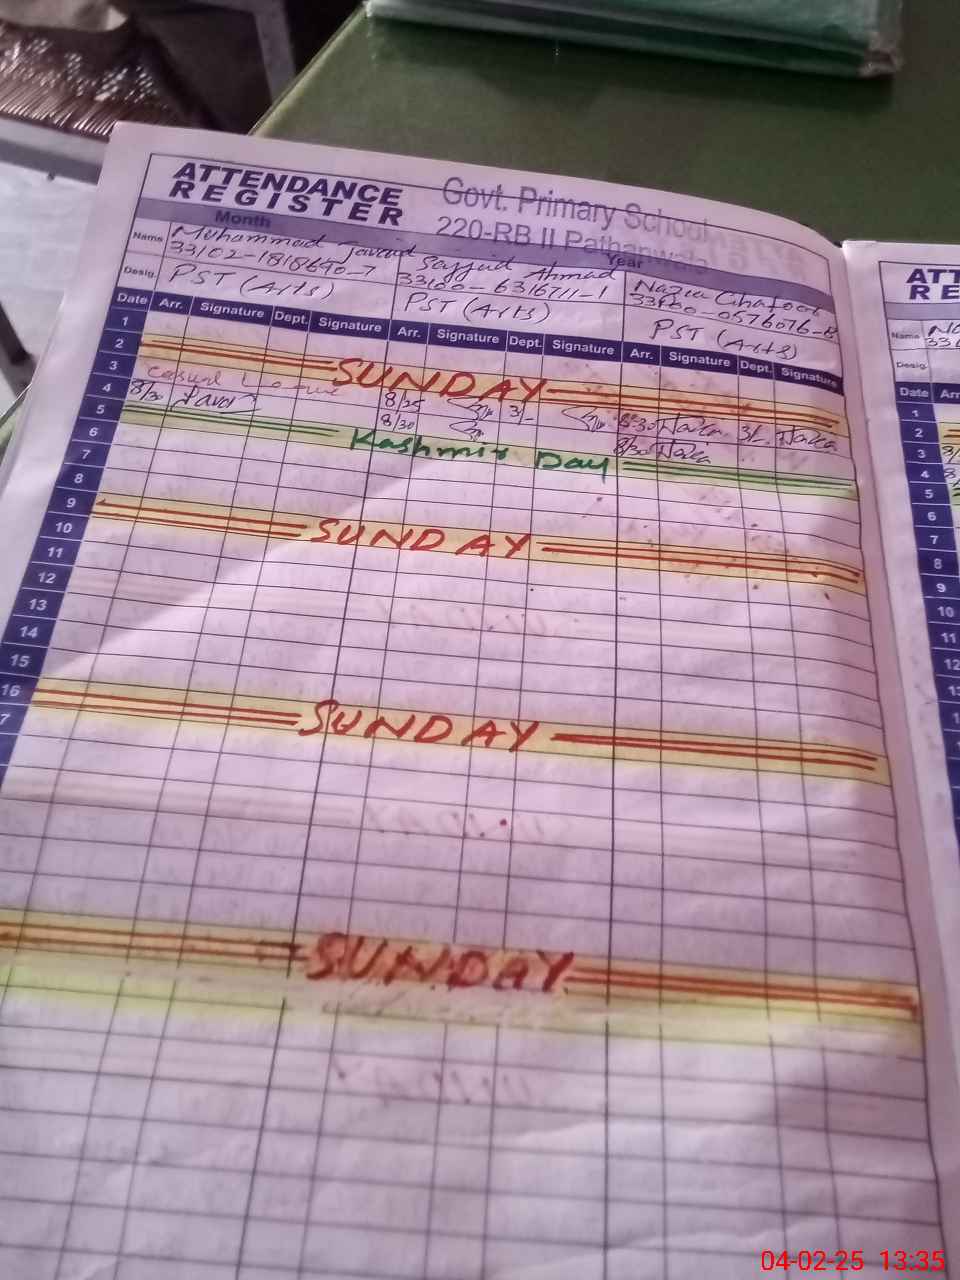 ATTENDANCE
REGISTER
Govt. Primary School
220-RB II Pathanwala
Month
Year
Name
Muhammad Javaid
Sajjad Ahmad
Nazia Ghafoor
33102-1818690-7
33100-6316711-1
Desig.
PST (Arts)
PST (Arts)
PST (Arts)
Date Arr. Signature Dept. Signature Arr. Signature Dept. Signature Arr. Signature Dept. Signature
1
2 SUNDAY
3 casual 8/25 3/- 8:30 Nazia 3/- Nazia
4 8/30 8/30 8/30 Nazia
5 Kashmir Day
6
7
8
9 SUNDAY
10
11
12
13
14
15
16 SUNDAY
7
SUNDAY
ATT
RE
Name
Desig.
Date Arr
1
2
3
4
5
6
7
8
9
10
11
12
04-02-25 13:35